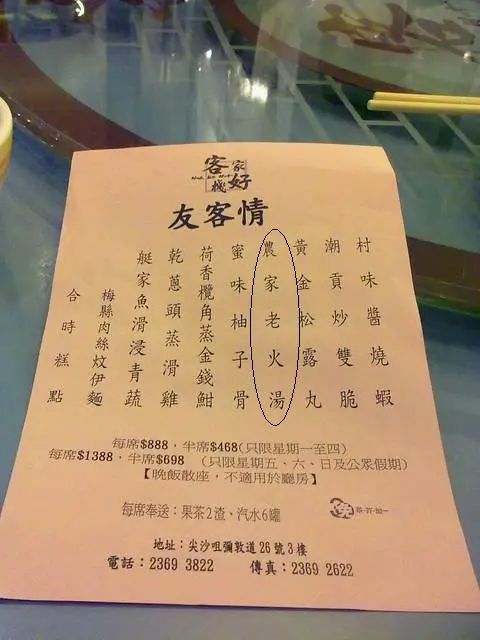 客家
好棧
友客情
村味醬燒蝦
潮貢炒雙脆
黃金松露丸
農家老火湯
蜜味柚子骨
荷香欖角蒸金錢魽
乾蔥頭蒸滑雞
艇家魚滑浸青蔬
梅縣肉絲炆伊麵
合時糕點
每席$888,半席$468(只限星期一至四)
每席$1388,半席$698 (只限星期五、六、日及公眾假期)
【晚飯散座,不適用於廳房】
每席奉送:果茶2渣、汽水6罐
地址:尖沙咀彌敦道26號3樓
電話:2369 3822 傳真:2369 2622